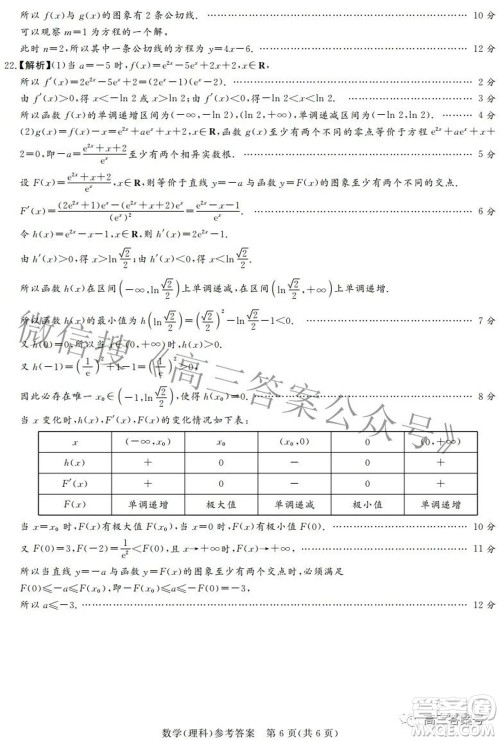 所以 f(x)与 g(x)的图象有 2 条公切线. 10 分
可以观察 m=1 为方程的一个解,
此时 n=2,所以其中一条公切线的方程为 y=4x-6. 12 分
22.【解析】(1)当 a=-5 时,f(x)=e^{2x}-5e^x+2x+2,x∈R,
所以 f′(x)=2e^{2x}-5e^x+2=(2e^x-1)(e^x-2). 2 分
由 f′(x)>0,得 x<-ln 2 或 x>ln 2;由 f′(x)<0,得-ln 2<x<ln 2. 3 分
所以函数 f(x)的单调递增区间为(-∞,-ln 2),(ln 2,+∞),单调递减区间为(-ln 2,ln 2). 4 分
(2)g(x)=f(x)-x=e^{2x}+ae^x+x+2,x∈R,函数 g(x)至少有两个不同的零点等价于方程 e^{2x}+ae^x+x+
2=0,即-a=\frac{e^{2x}+x+2}{e^x}至少有两个相异实数根. 5 分
设 F(x)=\frac{e^{2x}+x+2}{e^x},x∈R,则等价于直线 y=-a 与函数 y=F(x)的图象至少有两个不同的交点.
F′(x)=\frac{(2e^{2x}+1)e^x-(e^{2x}+x+2)e^x}{(e^x)^2}=\frac{e^{2x}-x-1}{e^x}. 6 分
令 h(x)=e^{2x}-x-1,x∈R,则 h′(x)=2e^{2x}-1.
由 h′(x)>0,得 x>ln\frac{\sqrt{2}}{2};由 h′(x)<0,得 x<ln\frac{\sqrt{2}}{2}.
所以函数 h(x)在区间(-∞,ln\frac{\sqrt{2}}{2})上单调递减,在区间(ln\frac{\sqrt{2}}{2},+∞)上单调递增.
所以函数 h(x)的最小值为 h(ln\frac{\sqrt{2}}{2})=(\frac{\sqrt{2}}{2})^2-ln\frac{\sqrt{2}}{2}-1<0. 7 分
又 h(0)=0,所以当 x∈(0,+∞)时,h(x)>0.
又 h(-1)=(\frac{1}{e})^2+1-1=(\frac{1}{e})^2>0,
因此必存在唯一 x_0∈(-1,ln\frac{\sqrt{2}}{2}),使得 h(x_0)=0. 8 分
当 x 变化时,h(x),F′(x),F(x)的变化情况如下表:
x (-∞,x_0) x_0 (x_0,0) 0 (0,+∞)
h(x) + 0 - 0 +
F′(x) + 0 - 0 +
F(x) 单调递增 极大值 单调递减 极小值 单调递增
当 x=x_0 时,F(x)有极大值 F(x_0),当 x=0 时,F(x)有极小值 F(0). 10 分
又 F(0)=3,F(-2)=\frac{1}{e^2}<F(0),且 x→+∞时,F(x)→+∞, 11 分
所以当直线 y=-a 与函数 y=F(x)的图象至少有两个交点时,必须满足
F(0)≤-a≤F(x_0)或-a≥F(x_0),即-a≥F(0)=3.
所以 a≤-3. 12 分
数学(理科)参考答案 第 6 页(共 6 页)
微信搜《高三答案公众号》
高三答案号